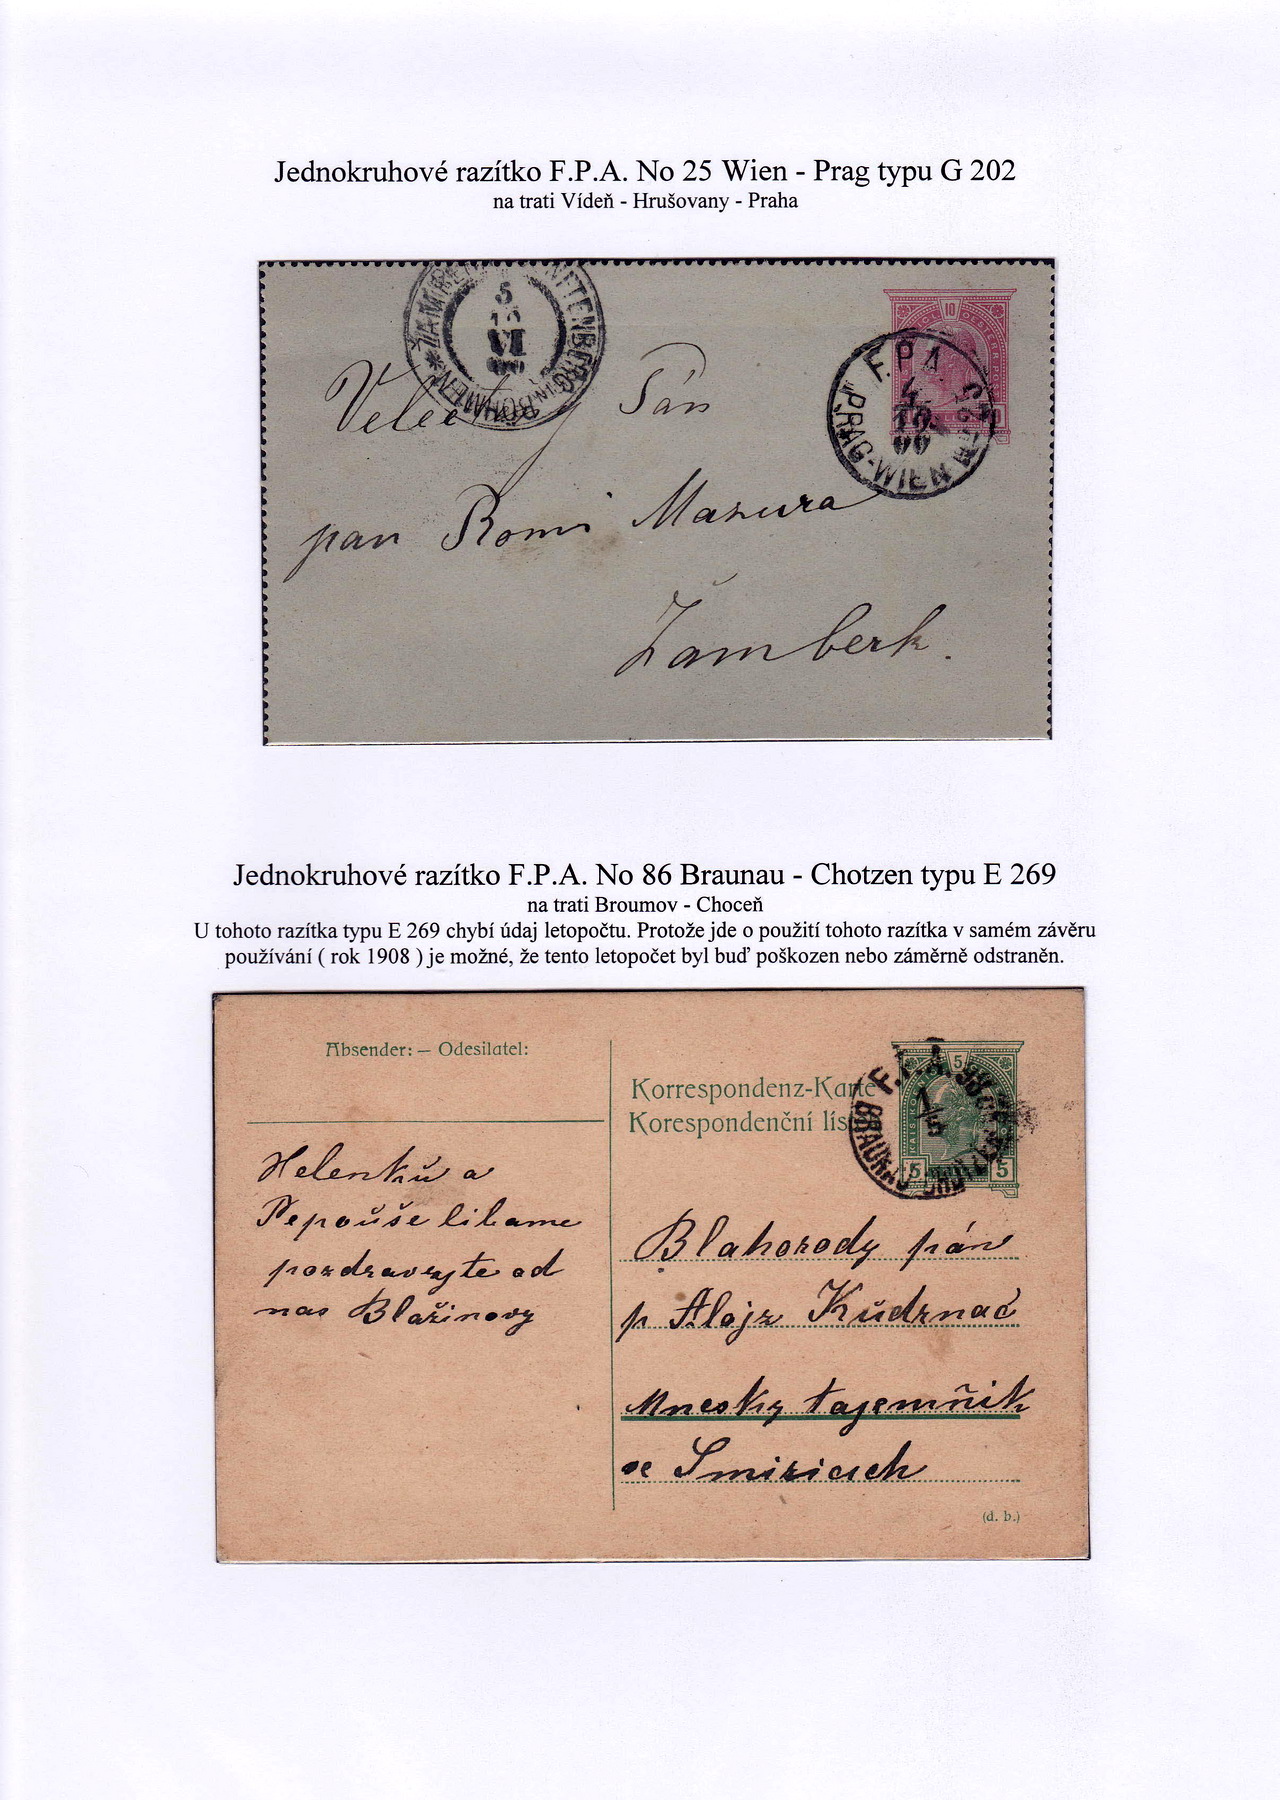 Jednokruhové razítko F.P.A. No 25 Wien - Prag typu G 202
na trati Vídeň - Hrušovany - Praha
ŽAMBERK SENFTENBERG IN BÖHMEN
5
VI
10
F.P.A
4
10
00
PRAG-WIEN
Velectěný Pán
pan Romi Mazura
Žamberk.
Jednokruhové razítko F.P.A. No 86 Braunau - Chotzen typu E 269
na trati Broumov - Choceň
U tohoto razítka typu E 269 chybí údaj letopočtu. Protože jde o použití tohoto razítka v samém závěru
používání ( rok 1908 ) je možné, že tento letopočet byl buď poškozen nebo záměrně odstraněn.
Absender: – Odesilatel:
Korrespondenz-Karte
Korespondenční lís
5
F.P.A. 86
1/5
BRAUNAU CHOTZEN
5 5
Helenků a
Pepouše libame
pozdravyte od
nas Blažinovy
Blahorody pán
p Alojz Kudrnač
tajemňik
ve Smiricich
(d. b.)